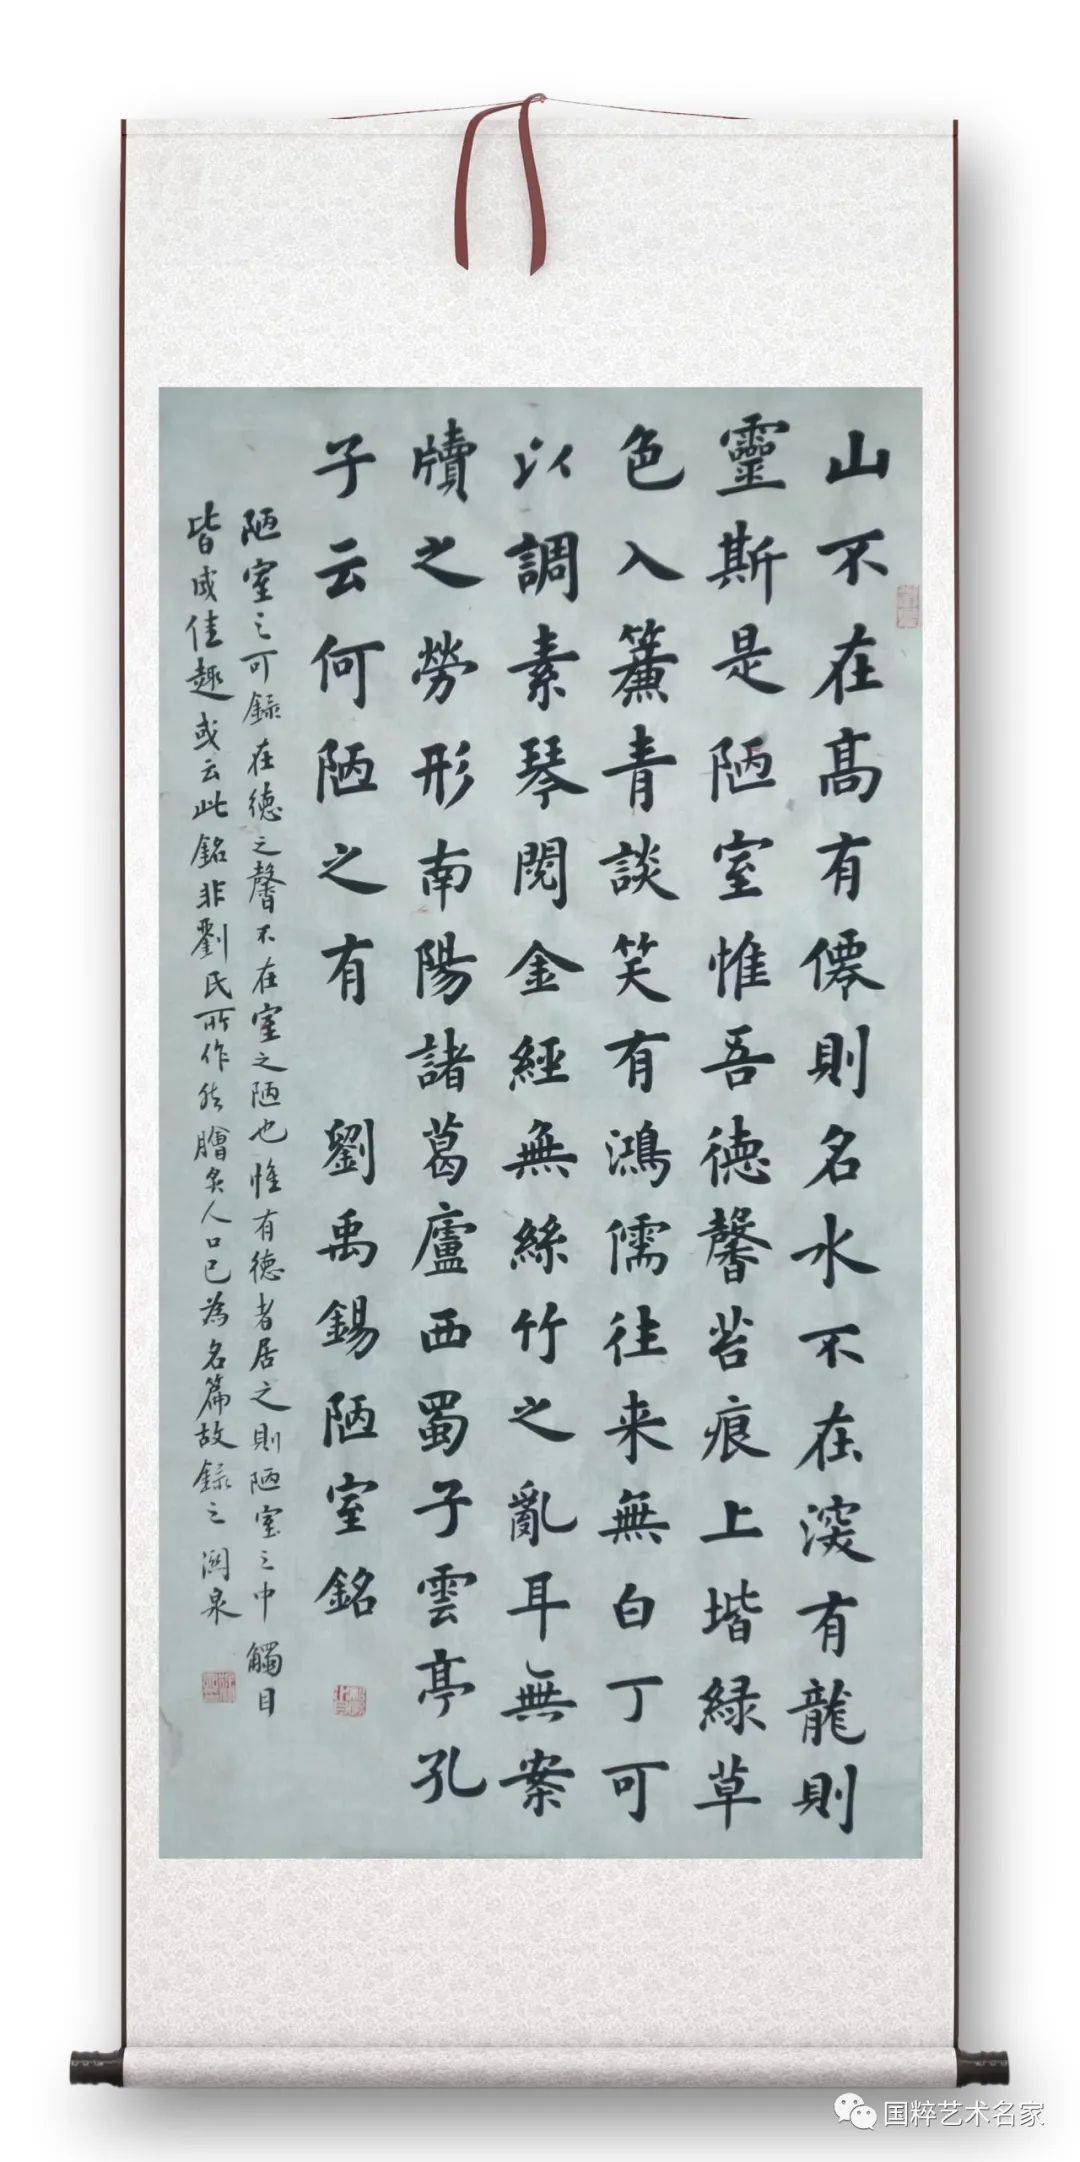 山不在高有僊則名水不在深有龍則
靈斯是陋室惟吾德馨苔痕上堦緑草
色入簾青談笑有鴻儒往来無白丁可
以調素琴閱金經無絲竹之亂耳無案
牘之勞形南陽諸葛廬西蜀子雲亭孔
子云何陋之有 劉禹錫陋室銘
陋室之可錄在德之馨不在室之陋也惟有德者居之則陋室之中觸目
皆成佳趣或云此銘非劉氏所作然膾炙人口已為名篇故錄之 泉
国粹艺术名家